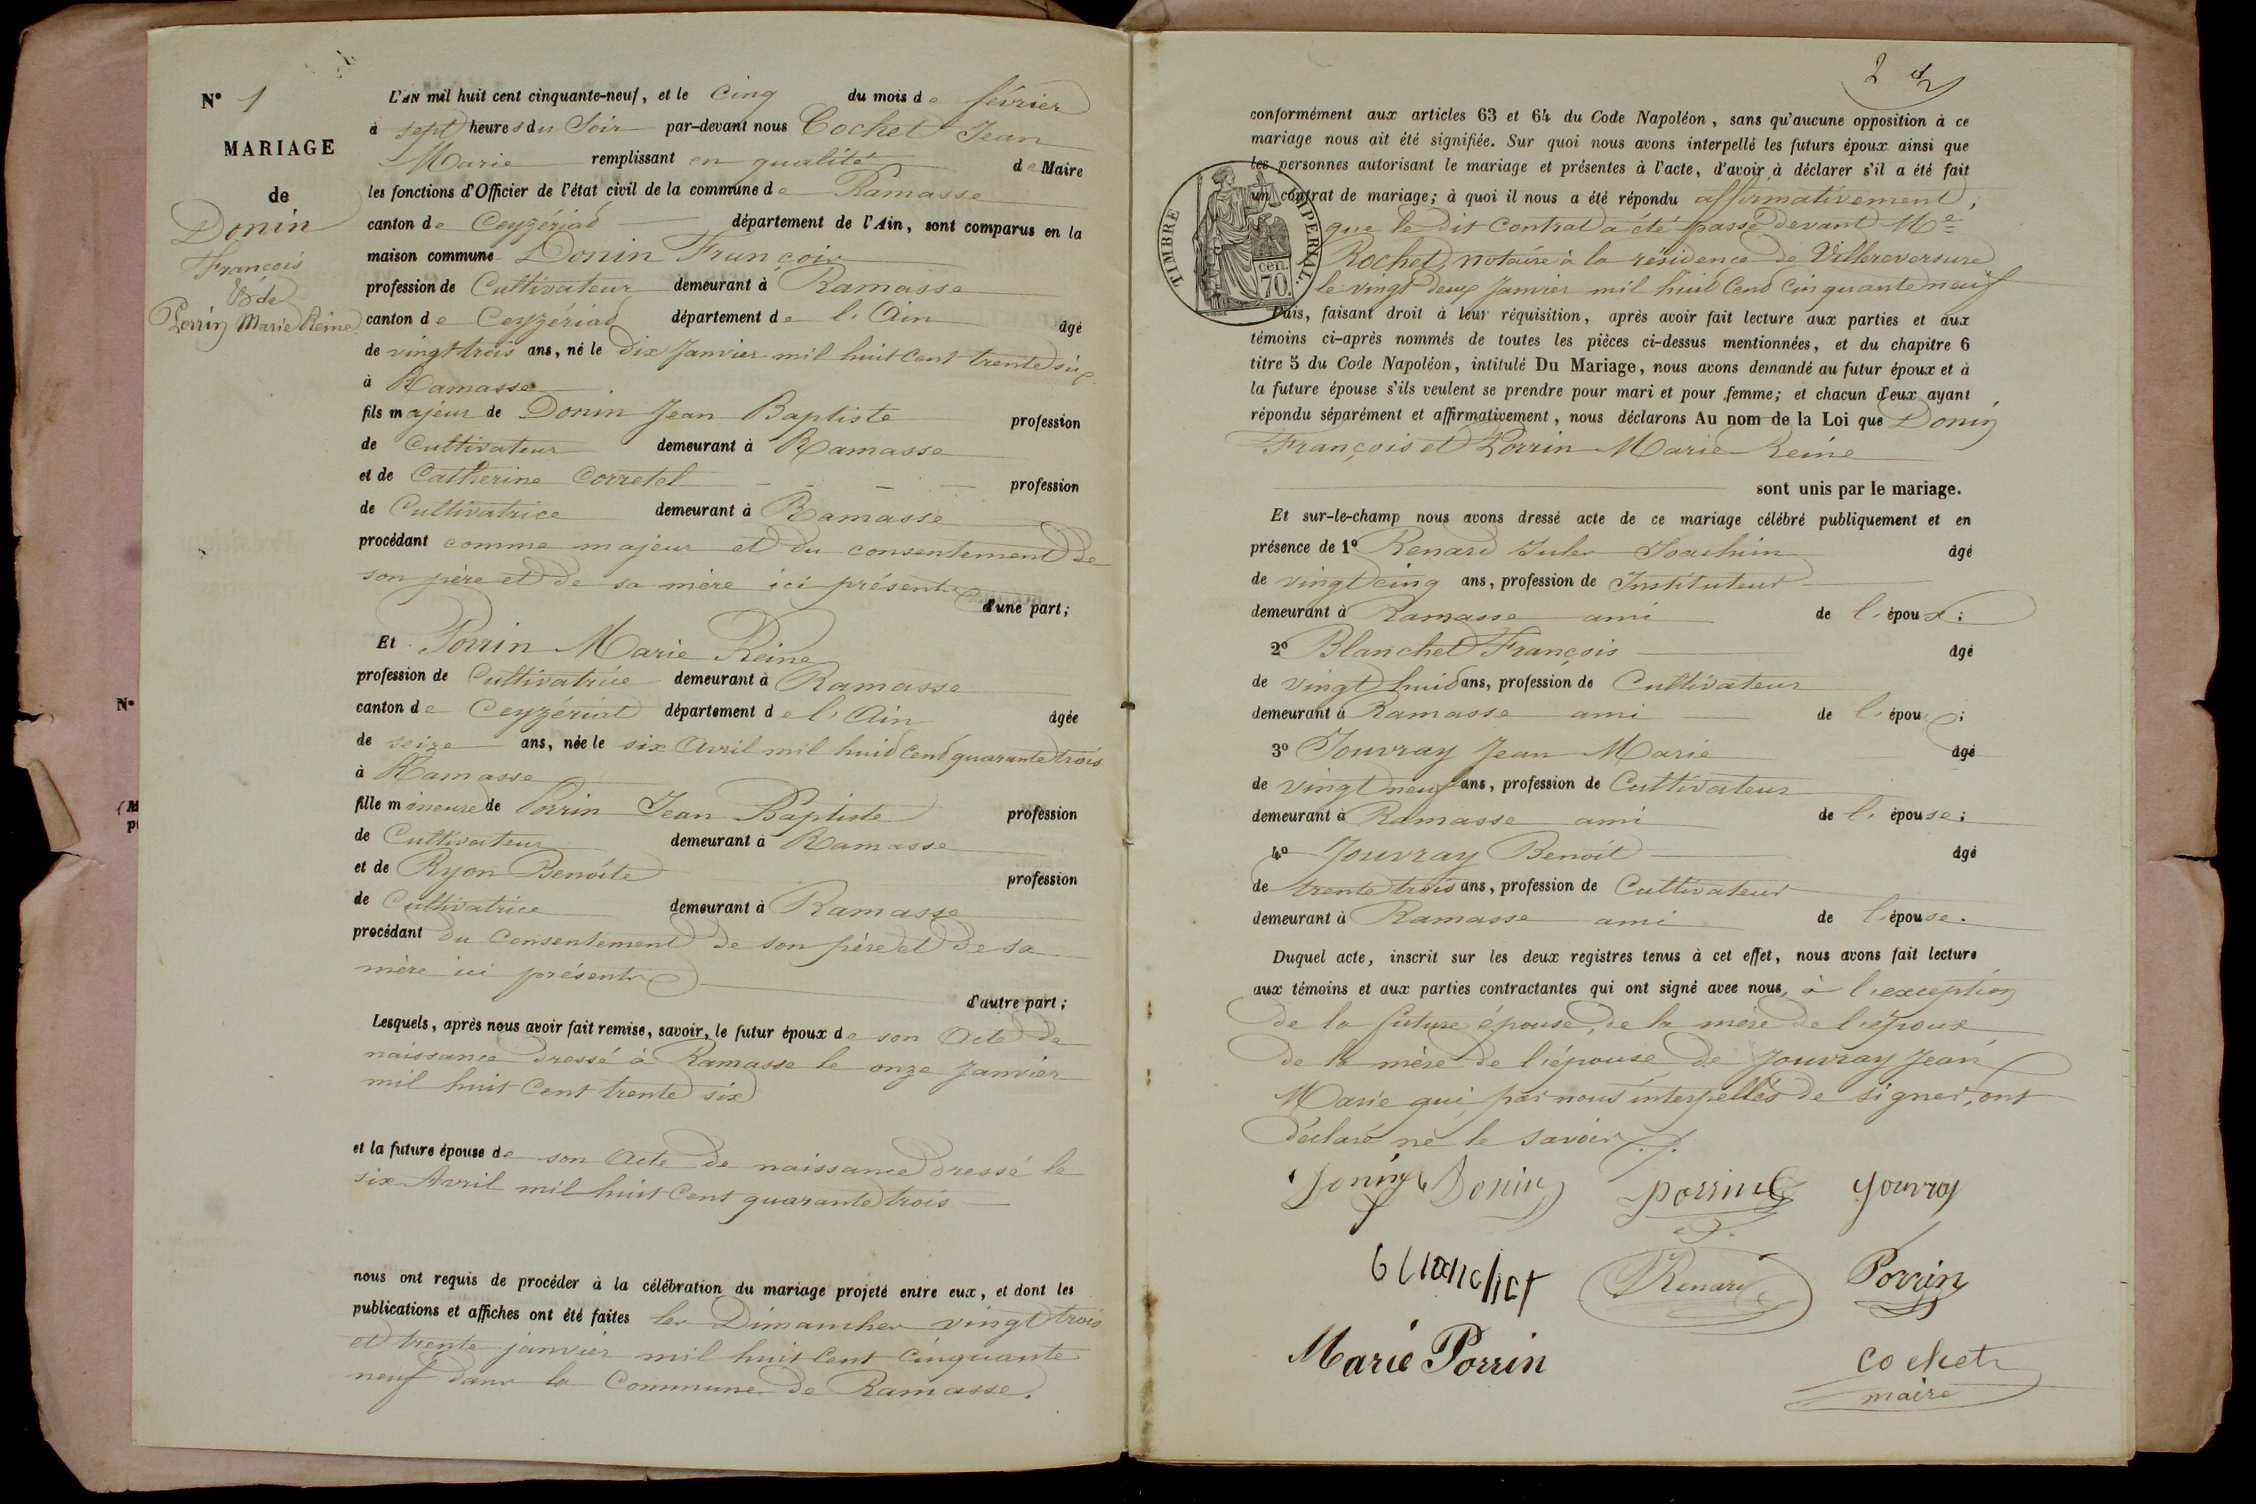 N° 1
MARIAGE
de
Donin
François
& de
Porrin Marie Reine
L'AN mil huit cent cinquante-neuf, et le cinq du mois de février
à sept heures du Soir par-devant nous Cochet Jean
Marie remplissant en qualité de Maire
les fonctions d'Officier de l'état civil de la commune de Ramasse
canton de Ceyzériat département de l'Ain, sont comparus en la
maison commune Donin François
profession de Cultivateur demeurant à Ramasse
canton de Ceyzériat département de l'Ain âgé
de vingt trois ans, né le dix Janvier mil huit Cent trente six
à Ramasse
fils majeur de Donin Jean Baptiste profession
de Cultivateur demeurant à Ramasse
et de Catherine Corretel profession
de Cultivatrice demeurant à Ramasse
procédant comme majeur et du consentement de
son père et de sa mère ici présents
d'une part;
Et Porrin Marie Reine
profession de Cultivatrice demeurant à Ramasse
canton de Ceyzériat département de l'Ain âgée
de seize ans, née le six Avril mil huit Cent quarante trois
à Ramasse
fille mineure de Porrin Jean Baptiste profession
de Cultivateur demeurant à Ramasse
et de Ryon Benoite profession
de Cultivatrice demeurant à Ramasse
procédant du consentement de son père et de sa
mère ici présents
d'autre part;
Lesquels, après nous avoir fait remise, savoir, le futur époux de son Acte de
naissance dressé à Ramasse le onze Janvier
mil huit Cent trente six
et la future épouse de son Acte de naissance dressé le
six Avril mil huit Cent quarante trois
nous ont requis de procéder à la célébration du mariage projeté entre eux, et dont les
publications et affiches ont été faites les Dimanches vingt trois
et trente janvier mil huit Cent Cinquante
neuf dans la Commune de Ramasse.
2
conformément aux articles 63 et 64 du Code Napoléon, sans qu'aucune opposition à ce
mariage nous ait été signifiée. Sur quoi nous avons interpellé les futurs époux ainsi que
les personnes autorisant le mariage et présentes à l'acte, d'avoir à déclarer s'il a été fait
un contrat de mariage; à quoi il nous a été répondu affirmativement;
que le dit Contrat a été passé devant Me
Rochet, notaire à la résidence de Villereversure
le vingt deux Janvier mil huit Cent Cinquante neuf
TIMBRE IMPERIAL.
cen. 70
Puis, faisant droit à leur réquisition, après avoir fait lecture aux parties et aux
témoins ci-après nommés de toutes les pièces ci-dessus mentionnées, et du chapitre 6
titre 5 du Code Napoléon, intitulé Du Mariage, nous avons demandé au futur époux et à
la future épouse s'ils veulent se prendre pour mari et pour femme; et chacun d'eux ayant
répondu séparément et affirmativement, nous déclarons Au nom de la Loi que Donin
François et Porrin Marie Reine
sont unis par le mariage.
Et sur-le-champ nous avons dressé acte de ce mariage célébré publiquement et en
présence de 1° Renard Jules Joachim âgé
de vingt cinq ans, profession de Instituteur
demeurant à Ramasse ami de l'époux;
2° Blanchet François âgé
de vingt huit ans, profession de Cultivateur
demeurant à Ramasse ami de l'époux;
3° Jouvray Jean Marie âgé
de vingt neuf ans, profession de Cultivateur
demeurant à Ramasse ami de l'épouse;
4° Jouvray Benoit âgé
de trente trois ans, profession de Cultivateur
demeurant à Ramasse ami de l'épouse.
Duquel acte, inscrit sur les deux registres tenus à cet effet, nous avons fait lecture
aux témoins et aux parties contractantes qui ont signé avec nous, à l'exception
de la future épouse, de la mère de l'époux
de la mère de l'épouse de Jouvray Jean
Marie qui, par nous interpellés de signer, ont
déclaré ne le savoir.
Donin Donin Porrin Jouvray
blanchet Renard Porrin
Marie Porrin Cochet
maire
N°